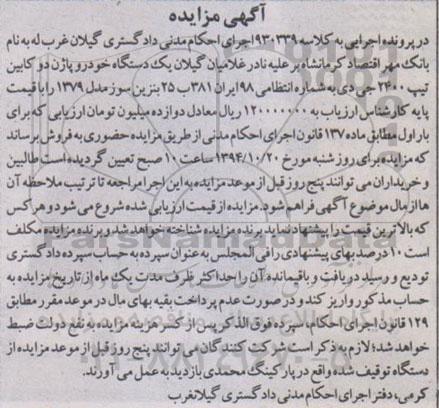 آگهی مزایده
در پرونده اجرایی به کلاسه ۹۳۰۳۳۹ اجرای احکام مدنی دادگستری گیلان غرب له به نام
بانک مهر اقتصاد کرمانشاه بر علیه نادر غلامیان گیلان یک دستگاه خودرو پاژن دو کابین
تیپ ۲۴۰۰ جی دی به شماره انتظامی ۹۸ ایران ۳۸۱ ب ۲۵ بنزین سوز مدل ۱۳۷۹ را با قیمت
پایه کارشناس ارزیاب به ۱۲۰۰۰۰۰۰۰ ریال معادل دوازده میلیون تومان ارزیابی که برای
بار اول مطابق ماده ۱۳۷ قانون اجرای احکام مدنی از طریق مزایده حضوری به فروش برساند
که مزایده برای روز شنبه مورخ ۱۳۹۴/۱۰/۲۰ ساعت ۱۰ صبح تعیین گردیده است طالبین
و خریداران می توانند پنج روز قبل از موعد مزایده به این اجرا مراجعه تا ترتیب ملاحظه آن
ها از مال موضوع آگهی فراهم شود. مزایده از قیمت ارزیابی شده شروع می شود و هر کس
که بالاترین قیمت را پیشنهاد نماید برنده مزایده شناخته خواهد شد و برنده مزایده مکلف
است ۱۰ درصد بهای پیشنهادی را فی المجلس به عنوان سپرده به حساب سپرده دادگستری
تودیع و رسید دریافت و باقیمانده آن را حداکثر ظرف مدت یک ماه از تاریخ مزایده به
حساب مذکور واریز کند و در صورت عدم پرداخت بقیه بهای مال در موعد مقرر مطابق
۱۲۹ قانون اجرای احکام، سپرده فوق الذکر پس از کسر هزینه مزایده به نفع دولت ضبط
خواهد شد؛ لازم به ذکر است شرکت کنندگان می توانند پنج روز قبل از موعد مزایده از
دستگاه توقیف شده واقع در پارکینگ محمدی بازدید به عمل می آورند.
کرمی، دفتر اجرای احکام مدنی دادگستری گیلانغرب
ParsNamadData